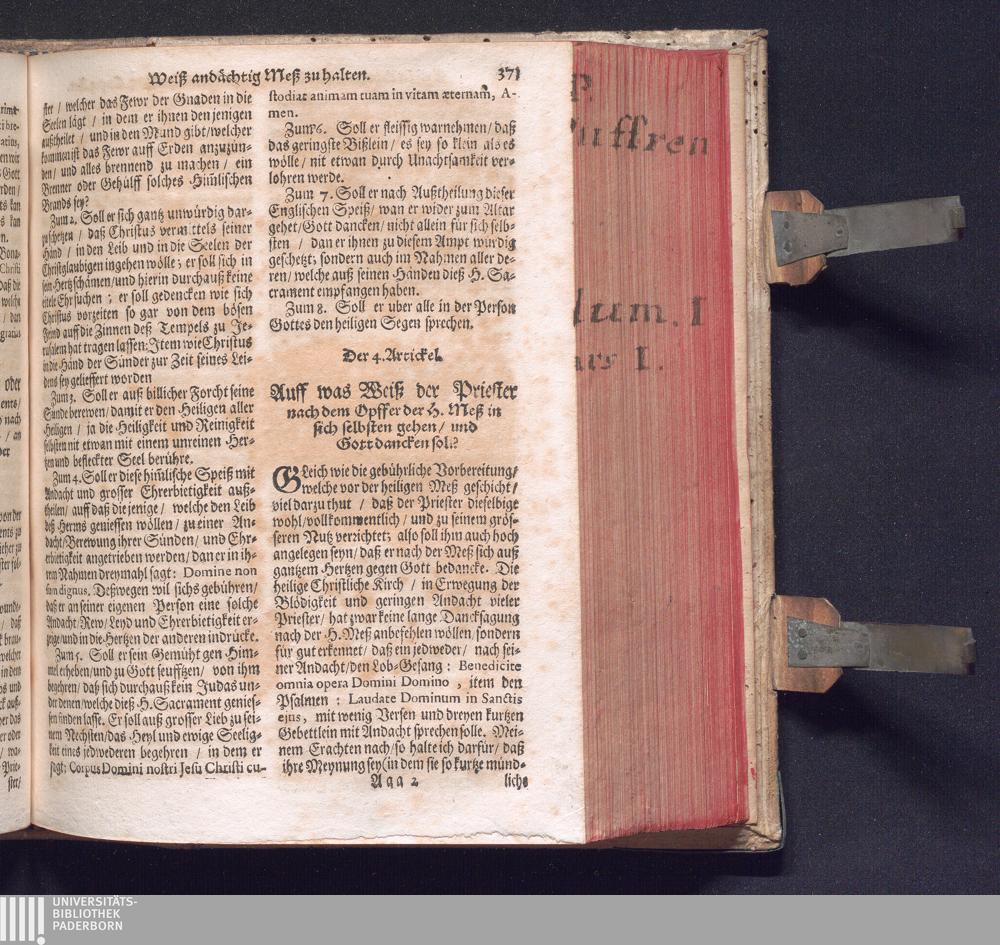 Weiß andächtig Meß zu halten.
371
ster / welcher das Fewr der Gnaden in die
Seelen lägt / in dem er ihnen denjenigen
außtheilet / und in den Mund gibt/welcher
kommen ist das Fewr auff Erden anzuzün-
den/ und alles brennend zu machen / ein
Brenner oder Gehülff solches Him̃lischen
Brands sey?
Zum 2. Soll er sich gantz unwürdig dar-
zuschetzen / daß Christus vermittels seiner
Händ / in den Leib und in die Seelen der
Christglaubigen ingehen wölle; er soll sich in
sein Hertz schämen/und hierin durchauß keine
eitele Ehr suchen ; er soll gedencken wie sich
Christus vorzeiten so gar von dem bösen
Feind auff die Zinnen deß Tempels zu Je-
rusalem hat tragen lassen: Item wie Christus
in die Händ der Sünder zur Zeit seines Lei-
dens sey geliefert worden
Zum 3. Soll er auß billicher Forcht seine
Sünde berewen/ damit er den Heiligen aller
Heiligen / ja die Heiligkeit und Reinigkeit
selbsten nit etwan mit einem unreinen Her-
tzen und befleckter Seel berühre.
Zum 4. Soll er diese him̃lische Speiß mit
Andacht und grosser Ehrerbietigkeit auß-
theilen/ auff daß die jenige / welche den Leib
deß Herrns geniessen wöllen / zu einer An-
dacht/Berewung ihrer Sünden/ und Ehr-
erbietigkeit angetrieben werden/ dan er in ih-
rem Nahmen dreymahl sagt: Domine non
sum dignus. Deßwegen wil sichs gebühren/
daß er an seiner eigenen Person eine solche
Andacht Rew/ Leyd und Ehrerbietigkeit er-
zeige/und in die Hertzen der anderen indrücke.
Zum 5. Soll er sein Gemüht gen Him-
mel erheben/und zu Gott seufftzen/ von ihm
begehren/ daß sich durchauß kein Judas un-
der denen/welche dieß H. Sacrament genies-
sen finden lasse. Er soll auß grosser Lieb zu sei-
nem Nechsten/das Heyl und ewige Seelig-
keit eines jedwederen begehren / in dem er
sagt: Corpus Domini nostri Jesu Christi cu-
stodiat animam tuam in vitam æternam, A-
men.
Zum 6. Soll er fleissig warnehmen/ daß
das geringste Bißlein/ es sey so klein als es
wölle / nit etwan durch Unachtsamkeit ver-
lohren werde.
Zum 7. Soll er nach Außtheilung dieser
Englischen Speiß/ wan er wider zum Altar
gehet/Gott dancken/ nicht allein für sich selb-
sten / dan er ihnen zu diesem Ampt würdig
geschetzt; sondern auch im Nahmen aller de-
ren/ welche auß seinen Händen dieß H. Sa-
crament empfangen haben.
Zum 8. Soll er uber alle in der Person
Gottes den heiligen Segen sprechen.
Der 4. Artickel.
Auff was Weiß der Priester
nach dem Opffer der H. Meß in
sich selbsten gehen/ und
Gott dancken sol.?
GLeich wie die gebührliche Vorbereitung/
welche vor der heiligen Meß geschicht /
viel darzu thut / daß der Priester dieselbige
wohl/vollkommentlich / und zu seinem grös-
seren Nutz verzichtet; also soll ihm auch hoch
angelegen seyn/ daß er nach der Meß sich auß
gantzem Hertzen gegen Gott bedancke. Die
heilige Christliche Kirch / in Erwegung der
Blödigkeit und geringen Andacht vieler
Priester/ hat zwar keine lange Dancksagung
nach der H. Meß anbefehlen wöllen/ sondern
für gut erkennet / daß ein jedweder / nach sei-
ner Andacht/den Lob-Gesang : Benedicite
omnia opera Domini Domino , item den
Psalmen : Laudate Dominum in Sanctis
ejus, mit wenig Versen und dreyen kurtzen
Gebettlein mit Andacht sprechen solle. Mei-
nem Erachten nach/ so halte ich darfür/ daß
ihre Meynung sey (in dem sie so kurtze münd-
Aaa 2
liche
P.
uffren
lum. I
ars I.
UNIVERSITÄTS-
BIBLIOTHEK
PADERBORN